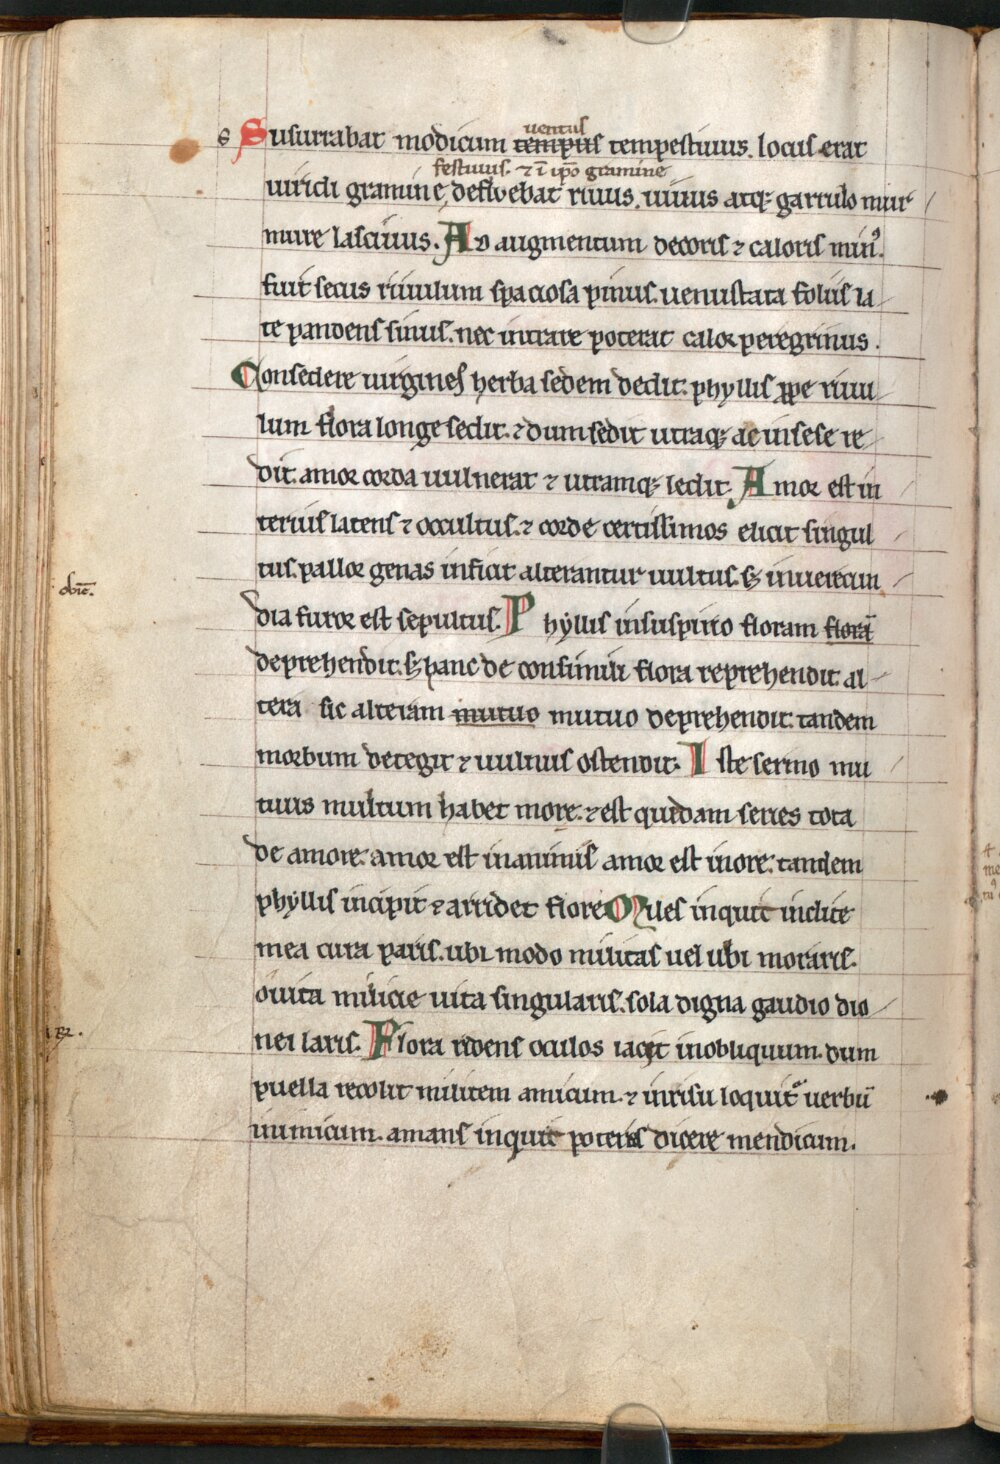 s Susurrabat modicum tempus tempestiuus. locus erat
uentus
festiuus. ⁊ ī ip̄o gramine
uiridi gramine, defluebat riuus. uiuus atq; garrulo mur
mure lasciuus. Ad augmentum decoris ⁊ caloris min᷒.
fuit secus riuulum spaciosa pinus. uenustata foliis la
te pandens sinus. nec intrare poterat calor peregrinus.
Consedere uirgines herba sedem dedit. phyllis ꝓpe riuu
lum flora longe sedit. ⁊ dum sedit utraq; ac in sese re
dit. amor corda uulnerat ⁊ utramq; ledit. Amor est in
terius latens ⁊ occultus. ⁊ corde certissimos elicit singul
tus. pallor genas inficit alterantur uultus. sꝫ in uerecun
dia furor est sepultus. Phyllis in suspirio floram florā
deprehendit. sꝫ hanc de consimili flora reprehendit. al
tera sic alteram mutuo mutuo deprehendit. tandem
morbum detegit ⁊ uulnus ostendit. Iste sermo mu
tuus multum habet more. ⁊ est quidam series tota
de amore. amor est in animis amor est in ore. tandem
phyllis incipit ⁊ arridet flore. Miles inquit inclite
mea cura paris. ubi modo militas uel ubi moraris.
o uita milicie uita singularis. sola digna gaudio dio
nei laris. Flora ridens oculos iacit in obliquum. dum
puella recolit militem amicum. ⁊ in risu loquit᷑ uerbū
inimicum. amans inquit poteris dicere mendicum.